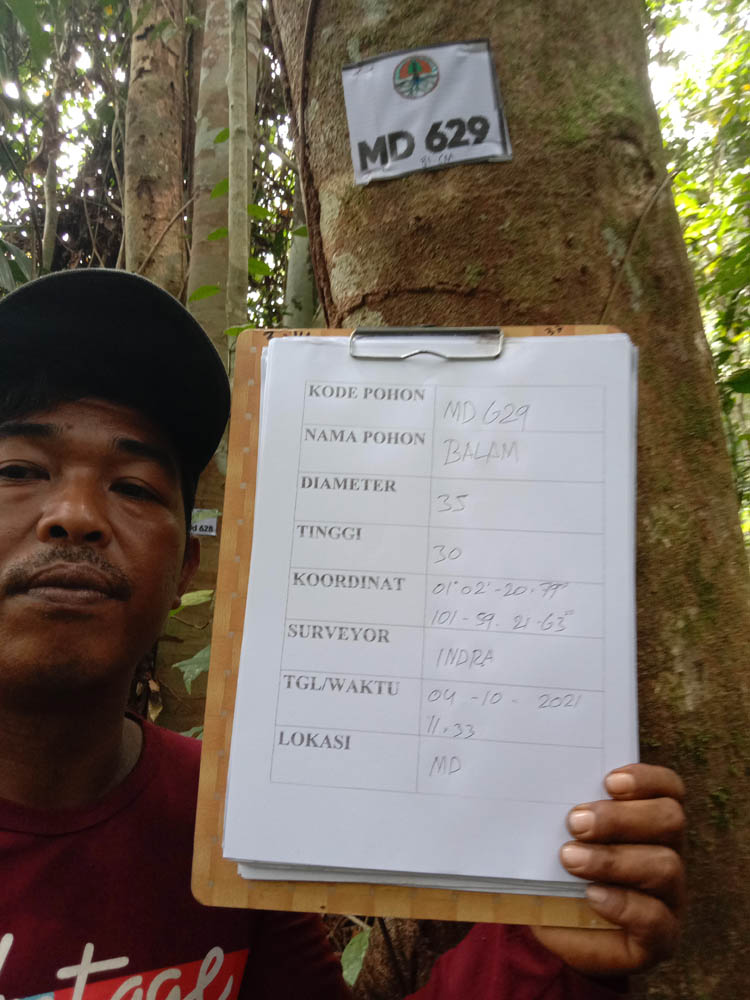 MD 629
Md 628
KODE POHON MD 629
NAMA POHON BALAM
DIAMETER 35
TINGGI 30
KOORDINAT 01° 02' - 20.79"
101 - 59. 21.63"
SURVEYOR INDRA
TGL/WAKTU 04 - 10 - 2021
11.33
LOKASI MD